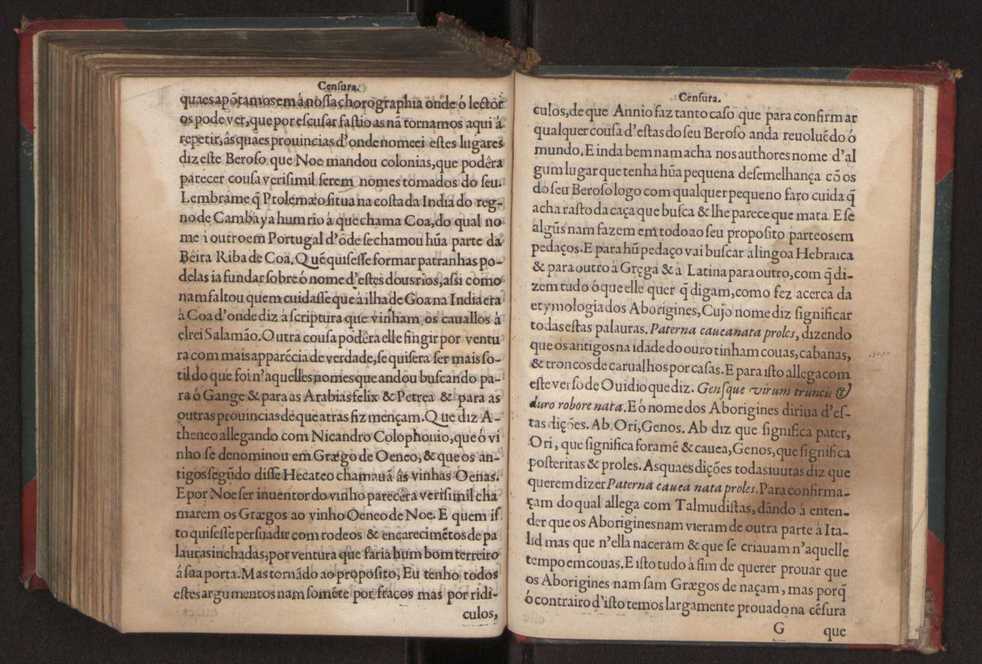 Censura.
quaes apõtamos em â nossa chorographia onde ó lector
os pode ver, que por escusar fastio as nã tornamos aqui â
repetir, âs quaes prouincias d'onde nomeei estes lugares
diz este Beroso que Noe mandou colonias, que podêra
parecer cousa verisimil serem nomes tomados do seu.
Lembrame q̃ Ptolemæo situa na costa da India do reg-
no de Cambaya hum rio â que chama Coa, do qual no
me i outro em Portugal d'õde se chamou hũa parte da
Beira Riba de Coa. Quẽ quisesse formar patranhas po-
delas ia fundar sobre ó nome d'estes dous rios, assi como
nam faltou quem cuidasse que â ilha de Goa na India era
â Coa d'onde diz â scriptura que vinham os cauallos â
elrei Salamão. Outra cousa podêra elle fingir por ventu
ra com mais apparécia de verdade, se quisera ser mais so-
til do que foi n'aquelles nomes que andou buscando pa-
ra ó Gange & para as Arabias felix & Petrea & para as
outras prouincias de que atras fiz mençam. Que diz A-
theneo allegando com Nicandro Colophonio, que ó vi
nho se denominou em Grægo de Oeneo, & que os an-
tigos segũdo disse Hecateo chamauã âs vinhas Oenas.
E por Noe ser inuentor do vinho parecera verisimil cha
marem os Grægos ao vinho Oeneo de Noe. E quem is
to quisesse persuadir com rodeos & encarecimẽtos de pa
lauras inchadas, por ventura que faria hum bom terreiro
â sua porta. Mas tornãdo ao proposito, Eu tenho todos
estes argumentos nam somẽte por fracos mas por ridi-
culos,
Censura.
culos, de que Annio faz tanto caso que para confirmar
qualquer cousa d'estas do seu Beroso anda reuoluẽdo ó
mundo. E inda bem nam acha nos authores nome d'al
gum lugar que tenha hũa pequena desemelhança cõ os
do seu Beroso logo com qualquer pequeno faro cuida q̃
acha rasto da caça que busca & lhe parece que mata. E se
algũs nam fazem em todo ao seu proposito parteos em
pedaços. E para hũ pedaço vai buscar â lingoa Hebraica
& para outro â Grega & â Latina para outro, com q̃ di-
zem tudo ó que elle quer q̃ digam, como fez acerca da
etymologia dos Aborigines, Cujo nome diz significar
todas estas palauras. Paterna caueanata proles, dizendo
que os antigos na idade do ouro tinham couas, cabanas,
& troncos de carualhos por casas. E para isto allega com
este verso de Ouidio que diz. Gensque virum truncis &
duro robore nata. E ó nome dos Aborigines diriua d'es-
tas dições. Ab, Ori, Genos. Ab diz que significa pater,
Ori, que significa foramẽ & cauea, Genos, que significa
posteritas & proles. As quaes dições todas iuutas diz que
querem dizer Paterna cauea nata proles. Para confirma-
çam do qual allega com Talmudistas, dando â enten-
der que os Aborigines nam vieram de outra parte â Ita-
lia mas que n'ella naceram & que se criauam n'aquelle
tempo em couas. E isto tudo â fim de querer prouar que
os Aborigines nam sam Grægos de naçam, mas porq̃
ó contrairo d'isto temos largamente prouado na cẽsura
G que